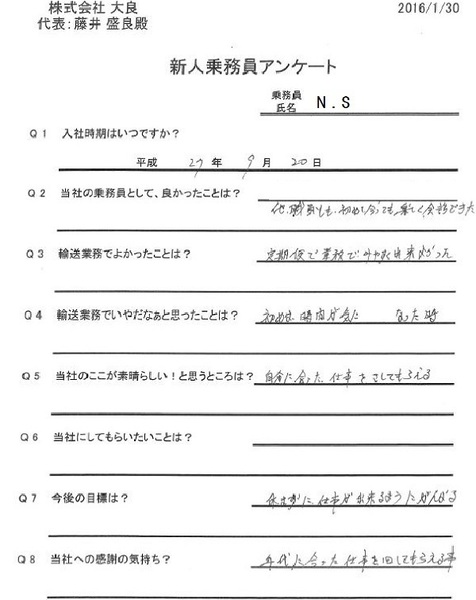 株式会社 大良
2016/1/30
代表：藤井 盛良殿
新人乗務員アンケート
乗務員
氏名 N.S
Q1 入社時期はいつですか？
平成 27 年 9 月 20 日
Q2 当社の乗務員として、良かったことは？
他、職員とも、初めて会っても楽しく会話できた
Q3 輸送業務でよかったことは？
定期便で業務で 出来 かった
Q4 輸送業務でいやだなぁと思ったことは？
初め 時間が なった時
Q5 当社のここが素晴らしい！と思うところは？
自分に合った仕事をさしてもらえる
Q6 当社にしてもらいたいことは？
Q7 今後の目標は？
休まずに仕事が出来るようにがんばる
Q8 当社への感謝の気持ち？
年代に合った仕事を回してもらえる事